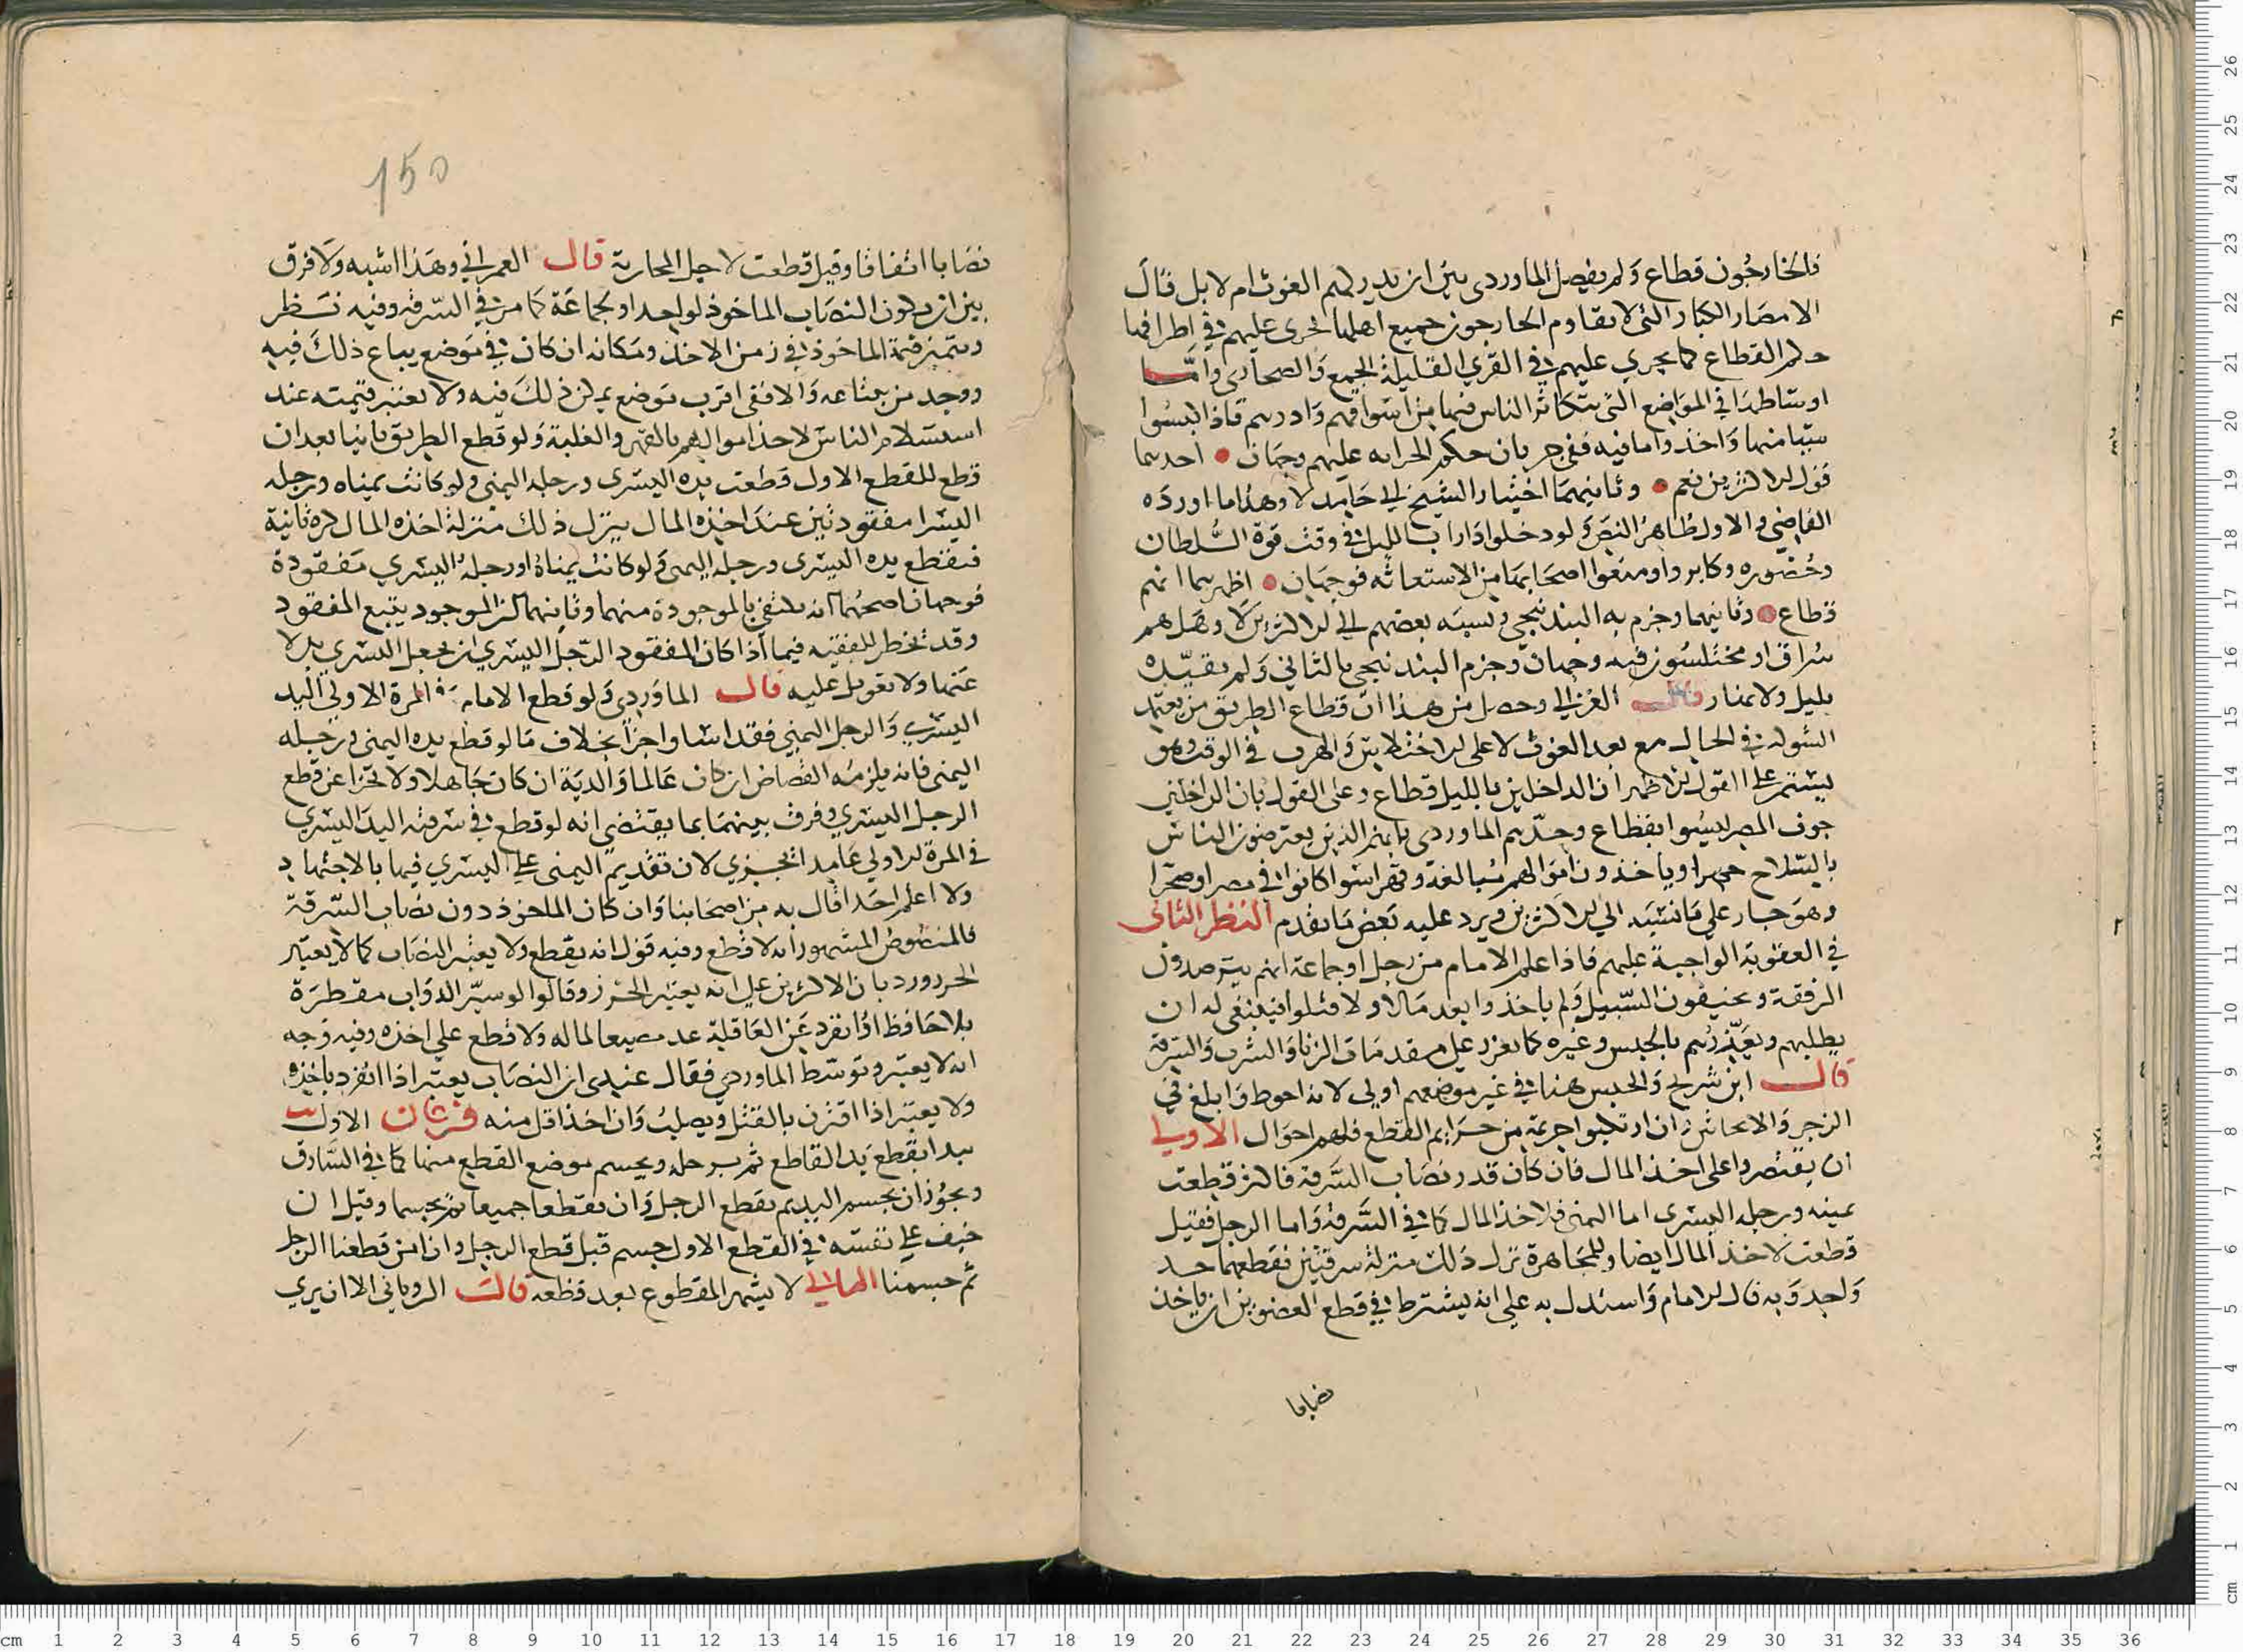 فالخارجون قطاع ولم يفصل الماوردى بين ان يدركهم الغوث ام لا بل قال
الامصار الكبار التى لا يقاوم الخارجون جميع اهلها تجرى عليهم في اطرافها
حكم القطاع كما يجري عليهم في القري القليلة الجمع والصحاري وأما
اوساطها في المواضع التى يتكاثر الناس فيها من اسواقهم وادرهم فاذا لبسوا
شيا منها واخذوا ما فيه ففي جريان حكم الحرابه عليهم وجهان احدهما
قول الاكثرين نعم وثانيهما اختيار الشيخ ابي حامد لا وهذا ما اورده
القاضي والاول ظاهر النص ولو دخلوا دارا بالليل في وقت قوة السلطان
وحضوره وكابروا ومنعوا اصحابها من الاستغاثه فوجهان اظهرهما انهم
قطاع وثانيهما وجزم به البندنيجي ونسبه بعضهم الي الاكثرين لا وهل هم
سراق او مختلسون فيه وجهان وجزم البندنيجي بالثاني ولم يقيده
بليل ولا بنهار قال الغزالي وحصل من هذا ان قطاع الطريق من يعتمد
الشوكة في الحال مع بعد الغوث لا على الاختلاس والهرب في الوقت وهو
يستمر على القول الاظهر ان الداخلين بالليل قطاع وعلى القول بان الداخلين
جوف المصر ليسوا بقطاع وحدهم الماوردى بانهم الذين يعترضون الناس
بالسلاح جهرا وياخذون اموالهم مبالغة وقهرا سوا كانوا في مصر او صحرا
وهو جار علي ما نسبه الي الاكثرين ويرد عليه بعض ما تقدم النظر الثانى
في العقوبة الواجبة عليهم فاذا علم الامام من رجل او جماعة انهم يترصدون
الرفقة ويخيفون السبيل ولم ياخذوا بعد مالا ولا قتلوا فينبغى له ان
يطلبهم ويعزرهم بالحبس وغيره كما يعزر على مقدمات الزنا والشرب والسرقة
قال ابن شريح والحبس هنا في غير موضعهم اولى لانه احوط وابلغ في
الزجر والايحاش فان ارتكبوا جريمة من جرايم القطع فلهم احوال الاولي
ان يقتصروا على اخذ المال فان كان قدر نصاب السرقة فاكثر قطعت
يمينه ورجله اليسرى اما اليمنى فلاخذ المال كما في السرقة واما الرجل فقيل
قطعت لاخذ المال ايضا وللمجاهرة تزل ذلك منزلة سرقتين فقطعهما حد
واحد وبه قال الامام واستدل به على انه يشترط في قطع العضوين ان ياخذ
نصابا
150
نصابا اتفاقا وقيل قطعت لاجل المحاربة قال العمراني وهذا اشبه ولا فرق
بين ان يكون النصاب الماخوذ لواحد او لجماعة كما مر في السرقه وفيه نظر
وتعتبر قيمة الماخوذ في زمن الاخذ ومكانه ان كان في موضع يباع ذلك فيه
ووجد من يبتاعه والا ففى اقرب موضع يمكن ذلك فيه ولا تعتبر قيمته عند
استسلام الناس لاخذ اموالهم بالقهر والغلبة ولو قطع الطريق ثانيا بعد ان
قطع للقطع الاول قطعت يده اليسرى ورجله اليمنى ولو كانت يمناه ورجله
اليسرا مفقودتين عند اخذه المال ينزل ذلك منزلة اخذه المال كرة ثانية
فتقطع يده اليسرى ورجله اليمنى ولو كانت يمناه او رجله اليسري مفقودة
فوجهان اصحهما انه يكتفى بالموجودة منهما وثانيهما ان الموجود يتبع المفقود
وقد يخطر للفقيه فيما اذا كان المفقود الرجل اليسري ان يجعل اليسري بدلا
عنها ولا تعويل عليه قال الماوردى ولو قطع الامام في المرة الاولى اليد
اليسري والرجل اليمني فقد اسا واجزا بخلاف ما لو قطع يده اليمنى ورجله
اليمنى فانه يلزمه القصاص ان كان عالما والدية ان كان جاهلا ولا تجزا عن قطع
الرجل اليسري وفرق بينهما بما يقتضى انه لو قطع في سرقته اليد اليسري
في المرة الاولي عامدا تجزي لان تقديم اليمنى علي اليسري فيها بالاجتهاد
ولا اعلم احدا قال به من اصحابنا وان كان الماخوذ دون نصاب السرقة
فالمنصوص المشهور انه لا قطع وفيه قول انه يقطع ولا يعتبر النصاب كما لا يعتبر
الحر ورد بان الاكثرين على انه يعتبر الحرز وقالوا لو سير الدواب مقطرة
بلا حافظ او انفرد عن القافلة عد مضيعا لماله ولا قطع علي اخذه وفيه وجه
انه لا يعتبر وتوسط الماوردي فقال عندى ان النصاب يعتبر اذا انفرد باخذه
ولا يعتبر اذا اقترن بالقتل ويصلب وان اخذ اقل منه فرعان الاول
يبدا بقطع يد القاطع ثم برجله ويحسم موضع القطع منهما كما في السارق
ويجوز ان يحسم اليد ثم يقطع الرجل وان يقطعا جميعا ثم يحسما وقيل ان
خيف علي نفسه في القطع الاول حسم قبل قطع الرجل وان امن قطعنا الرجل
ثم حسمنا الثاني لا يشهر المقطوع بعد قطعه قال الروياني الا ان يري